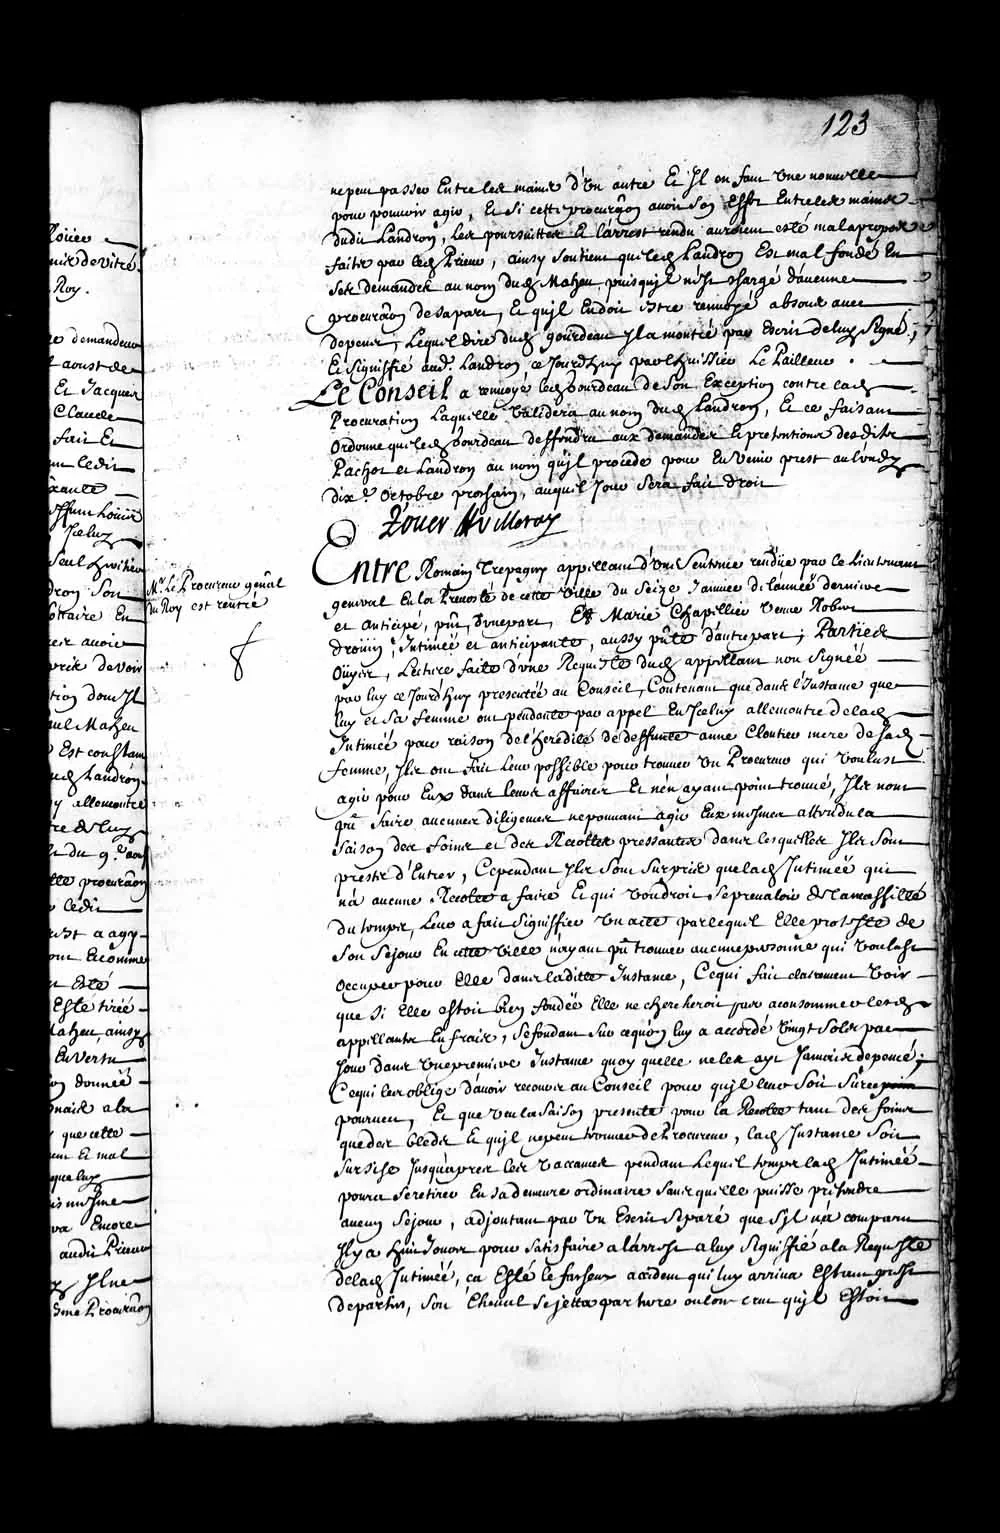 123
ne peut passer Entre les mains d'Un autre Et Il en faut Une nouvelle
pour pouvoir agir, Et Si cette procurãon avoit Son Effet Entre les mains
dudit Landron, Les poursuittes Et l'arrest rendu auroient esté mal a propos
faits par led. Prieur, ainsy Soutient que led. Landron Est mal fondé En
Ses demandes au nom dud. Mazeu puis qu'jl n'Est chargé d'aucune
procurãon de Sa part, Et qu'jl En doit Estre renvoyé absous avec
depens, Lequel dire dud. gourdeau Jl a montré par Escrit de luy Signé,
Et Signiffié aud. Landron ce Jourd'huy par l'huissier Le Pailleur.
Le Conseil a renvoyé led. gourdeau de Son Exception contre lad.
Procuration Laquelle Validera au nom dud. Landron, Et ce faisant
Ordonne que led. gourdeau deffendra aux demandes Et pretentions desdits
Pachot et Landron au nom qu'jl procede pour En Venir prest au lundy
dix.e Octobre prochain, auquel Jour Sera fait droit
Roüer Villeray
Mr. Le Procureur gñal
du Roy est rentré
Entre Romain Trepagny appellant d'Une Sentence rendüe par le Lieutenant
general En la Prevosté de cette Ville du Seize Januier de l'année derniere
et anticipé, pñt, d'vne part, Et Marie Chapellier Veuve Robert
droüin, Intimée et anticipante, aussy pñte d'autre part; Parties
Oüyes, Lecture faite d'vne Requeste dud. appellant non Signée
par luy ce Jourd'huy presentée au Conseil, Contenant que dans l'Instance que
luy et Sa femme ont pendante par appel En Jceluy allencontre de lad.
Intimée pour raison de l'heredité de deffunte anne Cloutier mere de Sad.
femme, Ils ont fait leur possible pour trouver Un Procureur qui Voulust
agir pour Eux dans leurs affaires Et n'en ayant point trouvé, Ils n'ont
pû faire aucunes diligences ne pouvant agir Eux mesmes attendu la
Saison des foins et des Recoltes pressantes dans lesquelles Ils Sont
prests d'Entrer, Cependant Ils Sont Surpris que lad. Intimée qui
n'a aucune Recolte a faire Et qui Voudroit Se prevaloir de la necessité
du temps, Leur a fait Signiffier Un acte par lequel Elle proteste de
Son Sejour En cette Ville n'ayant pû trouver aucune personne qui Voulust
Occuper pour Elle dans laditte Instance, Ce qui fait clairement Voir
que Si Elle estoit bien fondée Elle ne chercheroit pas a consommer lesd.
appellants En frais, Se fondant Sur ce qu'on luy a accordé Vingt Sols par
Jour dans Une premiere Instance quoy qu'elle ne les ayt Jamais depencé,
Ce qui les oblige d'avoir recours au Conseil pour qu'jl leur Soit Sur ce
pourveu, Et que Veu la Saison presente pour la Recolte tant des foins
que des bleds Et qu'jl ne peut trouver de Procureur, lad. Instance Soit
Sursise Jusqu'apres les Vaccances pendant Lequel temps lad. Intimée
poura Se retirer En Sa demeure ordinaire Sans qu'elle puisse pretendre
aucun Sejour, adjoutant par Un Escrit Separé que S'jl n'a comparu
Jl y a huit Jours pour Satisfaire a l'arrest a luy Signiffié a la Requeste
de lad. Intimée, ca Esté le facheux accident qui luy arriva Estant prest
de partir, Son Cheval Se jetta par terre ou l'on crut qu'jl Estoit